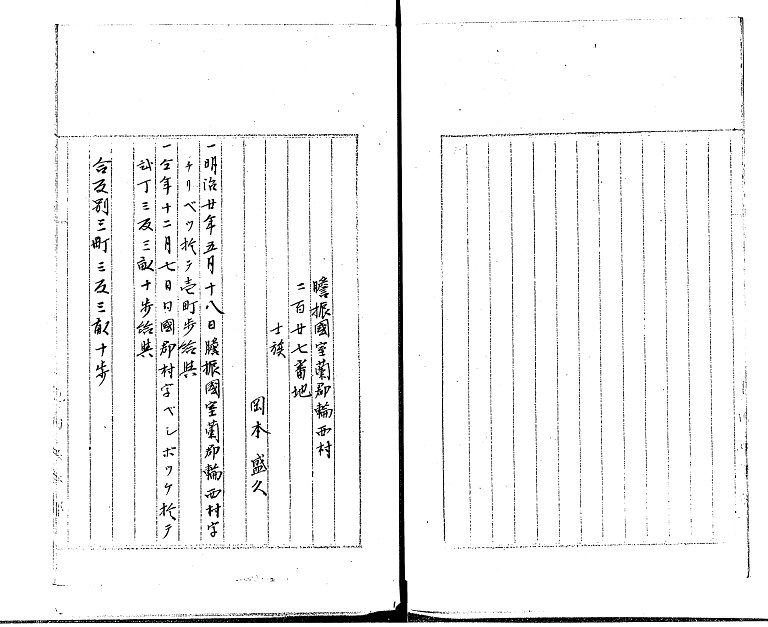 膽振國室蘭郡輪西村
二百廿七番地
士族
岡本盛久
一明治廿年五月十八日膽振國室蘭郡輪西村字
チリベツ於テ壱町歩給與
一仝年十二月七日日國郡村字ベシボツケ於テ
弐丁三反三畝十歩給與
合反別三町三反三畝十歩